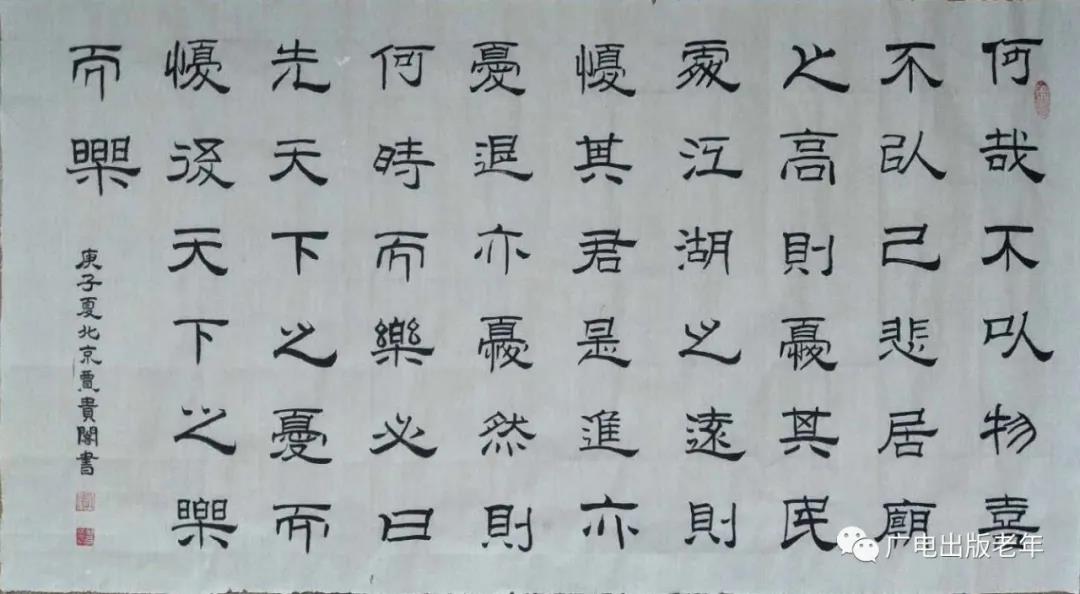 何哉不以物喜
不以己悲居廟
之高則憂其民
處江湖之遠則
懮其君是進亦
憂退亦憂然則
何時而樂必曰
先天下之憂而
懮後天下之樂
而樂
庚子夏北京賈貴書
广电出版老年